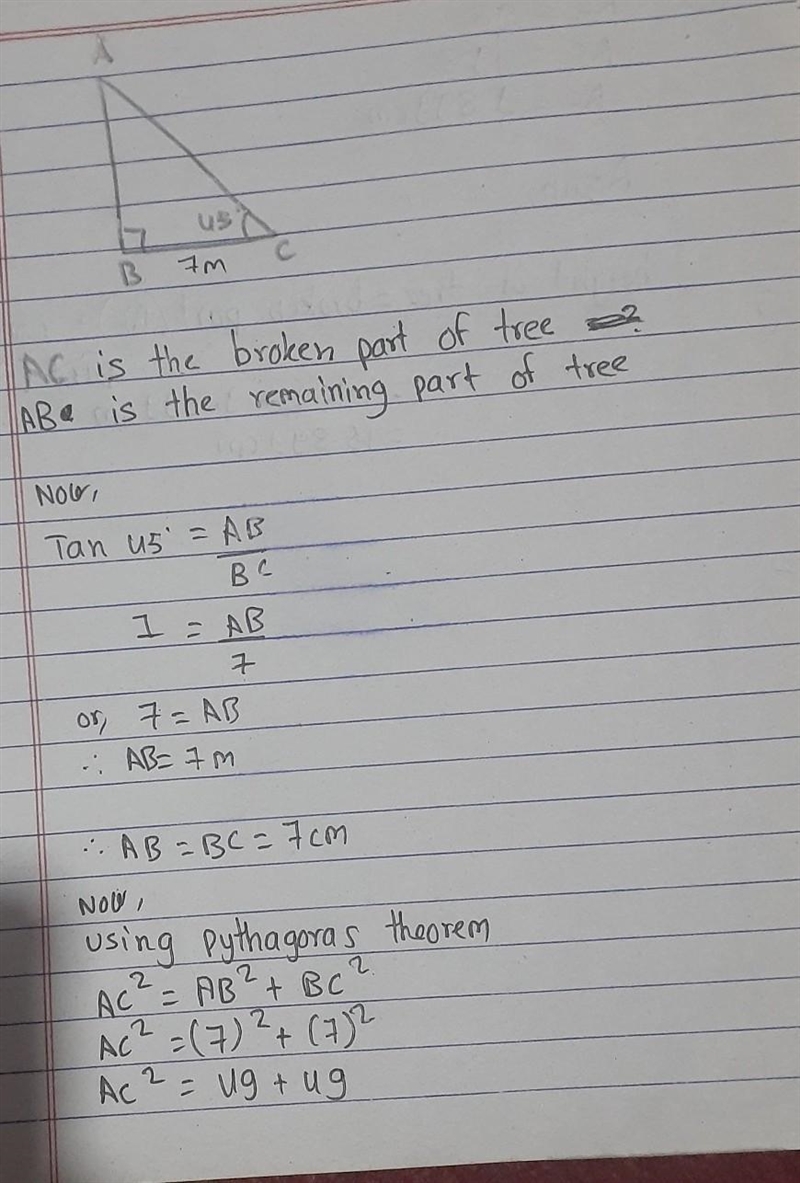 A
45°
B
7m
C
AC is the broken part of tree
AB is the remaining part of tree
Now,
Tan 45° = AB
BC
1 = AB
7
or, 7 = AB
∴ AB = 7 m
∴ AB = BC = 7cm
Now,
using pythagoras theorem
AC² = AB² + BC²
AC² = (7)² + (7)²
AC² = 49 + 49